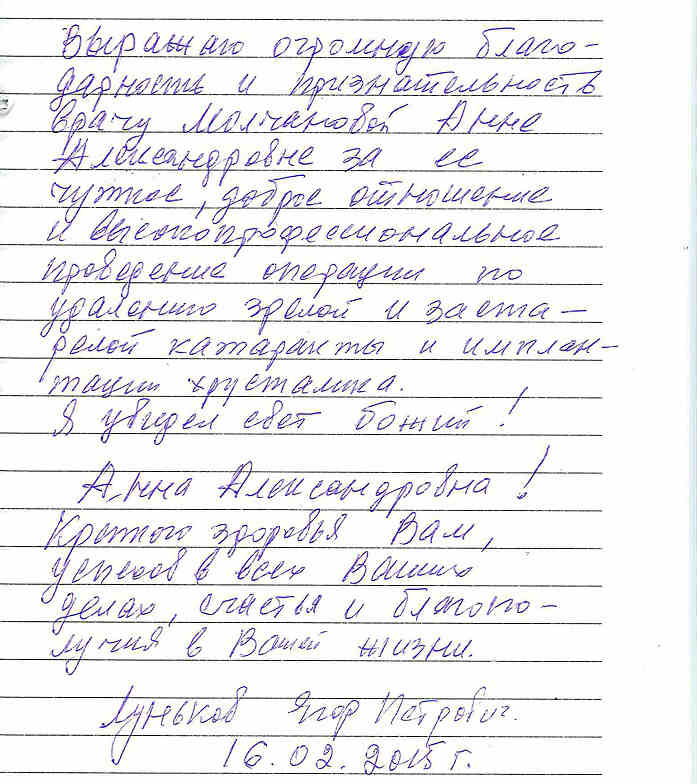 Выражаю огромную благо-
дарность и признательность
врачу Молчановой Анне
Александровне за ее
чуткое, доброе отношение
и высокопрофессиональное
проведение операции по
удалению зрелой и заста-
релой катаракты и имплан-
тации хрусталика.
Я увидел свет божий!
Анна Александровна!
Крепкого здоровья Вам,
успехов в всех Ваших
делах, счастья и благопо-
лучия в Вашей жизни.
Луньков Ягор Петрович.
16.02.2015 г.